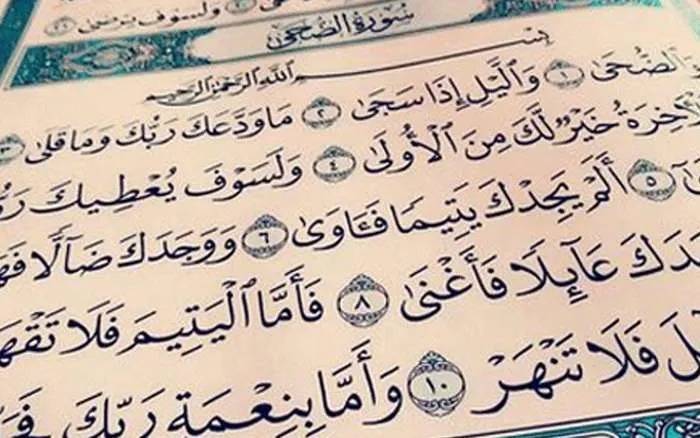 وَلَسَوْفَ يَرْضَىٰ ٢١
سُورَةُ الضُّحَىٰ
بِسْمِ اللَّهِ الرَّحْمَٰنِ الرَّحِيمِ
الضُّحَىٰ ١ وَٱلَّيْلِ إِذَا سَجَىٰ ٢ مَا وَدَّعَكَ رَبُّكَ وَمَا قَلَىٰ ٣
خِرَةُ خَيْرٌ لَّكَ مِنَ ٱلْأُولَىٰ ٤ وَلَسَوْفَ يُعْطِيكَ رَبُّ
٥ أَلَمْ يَجِدْكَ يَتِيمًا فَـَٔاوَىٰ ٦ وَوَجَدَكَ ضَآلًّا فَهَ
جَدَكَ عَآئِلًا فَأَغْنَىٰ ٨ فَأَمَّا ٱلْيَتِيمَ فَلَا تَقْهَ
ئِلَ فَلَا تَنْهَرْ ١٠ وَأَمَّا بِنِعْمَةِ رَبِّكَ فَ